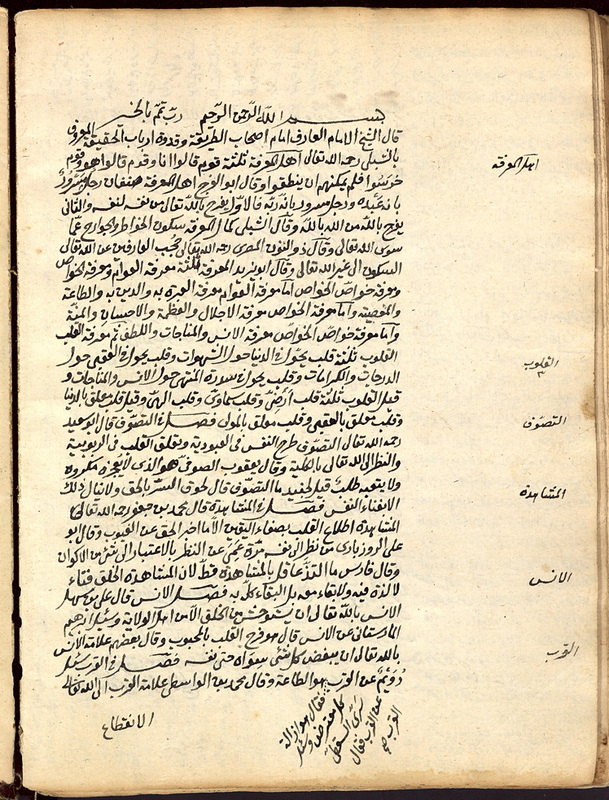 بسم الله الرحمن الرحيم رب تمم بالخير
قال الشيخ الامام العارف امام اصحاب الطريقة وقدوة ارباب الحقيقة المعروف
بالشبلى رحمه الله تعالى اهل المعرفة ثلثة قوم قالوا انا وقوم قالوا هو وقوم
خرسوا فلم يمكنهم ان ينطقوا وقال ابو الفرج اهل المعرفة صنفان رجل مسرور
بانه عبده ورجل مسرور بانه ربه فالاول يفرح بالله تعالى من نفسه لنفسه والثانى
يفرح بالله من الله بالله وقال الشبلى كمال المعرفة سكون الخواطر والجوارح عما
سوى الله تعالى وقال ذو النون المصرى رحمه الله تعالى تحجب العارفين عن الله تعالى
السكون الى غير الله تعالى وقال ابو يزيد المعرفة ثلثة معرفة العوام ومعرفة الخواص
ومعرفة خواص الخواص اما معرفة العوام معرفة العبرة به والدين به والطاعة
والمعصية واما معرفة الخواص معرفة الاجلال والعظمة والاحسان والمنة
واما معرفة خواص الخواص معرفة الانس والمناجات واللطف ثم معرفة القلب
القلوب ثلثة قلب يجول فى الدنيا حول الشهوات وقلب يجول فى العقبى حول
الدرجات والكرامات وقلب يجول فى سدرة المنتهى حول الانس والمناجات و
قيل القلوب ثلثة قلب ارضى وقلب سماوى وقلب الهى وقيل قلب معلق بالدنيا
وقلب معلق بالعقبى وقلب معلق بالمولى فصل فى التصوف قال ابو سعيد
رحمه الله تعالى التصوف طرح النفس فى العبودية وتعلق القلب فى الربوبية
والنظر الى الله تعالى بالكلية وقال يعقوب الصوفى هو الذى لا يعجزه مكروه
ولا يتعبه طلب قيل لجنيد ما التصوف قال لحوق السر بالحق ولا ينال ذلك
الا بفناء النفس فصل فى المشاهدة قال محمد بن جعفر رحمه الله تعالى
المشاهدة اطلاع القلب بصفاء اليقين الا ما اخبر الحق عن الغيوب وقال ابو
على الروزبارى من نظر الى نفسه مرة عمى عن النظر بالاعتبار الى شئ من الاكوان
وقال فارس ما التذ عاقل بالمشاهدة قط لان المشاهدة الخلق فناء
لا لذة فيه والبقاء معه بل البقاء كل به فصل الانس قال على بن سهل
الانس بالله تعالى ان يستوحش من الخلق الا من اهل الولاية وسئل ابراهيم
المارستانى عن الانس قال هو فرح القلب بالمحبوب وقال بعضهم علامة الانس
بالله تعالى ان يبغض كل شئ سواه حتى نفسه فصل فى القرب سئل
رويم عن القرب هو الطاعة وقال محمد بن الواسطى علامة القرب الى الله تعالى
الانقطاع
فقال هو ازالة
كل معترض وسئل
سرى السقطى
عن القرب فقال
القرب صح
اهل المعرفة
القلوب
٣
التصوف
المشاهدة
الانس
القرب